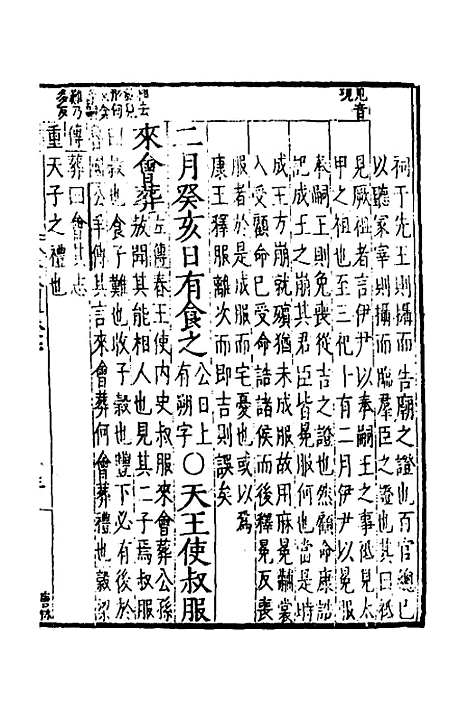 見音
現
祠于先王則攝而告廟之證也百官總己
以聽冢宰則攝而臨羣臣之證也其曰祗
見厥祖者言伊尹以奉嗣王之事祗見太
甲之祖也至三祀十有二月伊尹以冕服
奉嗣王則免喪從吉之證也然顧命康誥
記成王之崩其君臣皆冕服何也當是時
成王方崩就殯猶未成服故用麻冕黼裳
入受顧命已受命誥諸侯而後釋冕反喪
服者於是成服而宅憂也或以為
康王釋服離次而即吉則誤矣
二月癸亥日有食之公日上有朔字〇天王使叔服
來會葬左傳春王使内史叔服來會葬公孫
敖聞其能相人也見其二子焉叔服
曰穀也食子難也收子穀也豐下必有後於
魯國公羊傳其言來會葬何會葬禮也穀梁
傳葬曰會其志
重天子之禮也
難乃
多反